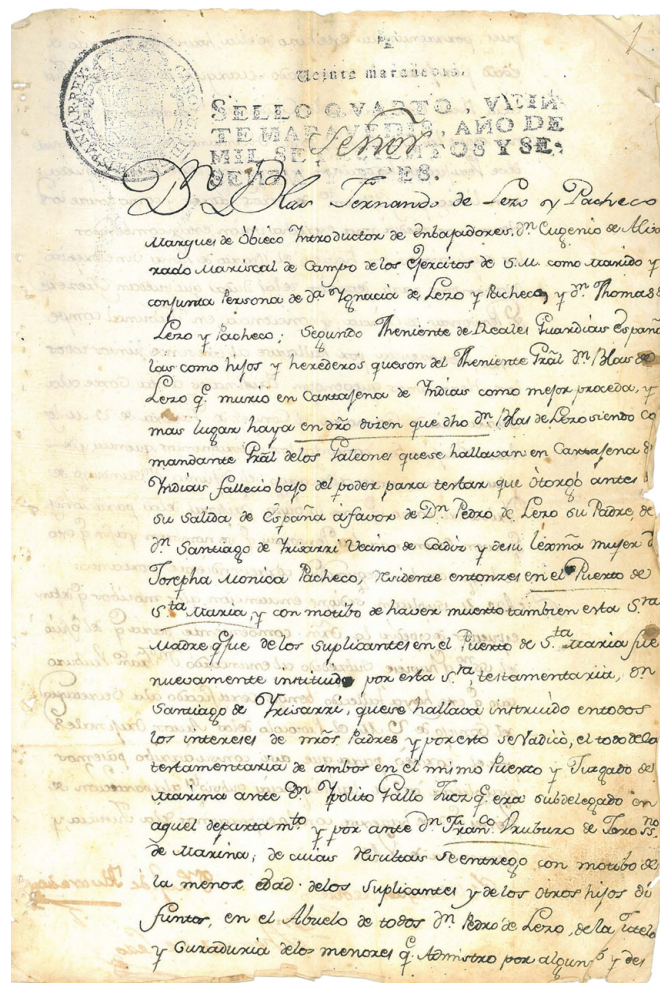 1
Veinte maravedis.
CAROLUS III HISPANIAR. REX
SELLO QVARTO, VEIN-
TE MARAVEDIS, AÑO DE
MIL SETECIENTOS Y SE-
SENTA Y TRES.
Señor
Dn. Blas Fernando de Lezo y Pacheco
Marques de Obieco Introductor de Enbajadores, Dn Eugenio de Alva
rado Mariscal de Campo de los Exercitos de S. M. como Marido y
conjunta Persona de da. Ygnacia de Lezo y Pacheco, y dn. Thomas de
Lezo y Pacheco; Segundo Theniente de Reales Guardias Españo
las como hijos y herederos que son del Theniente Gräl dn. Blas de
Lezo q̃ murio en Cartajena de Yndias como mejor proceda, y
mas lugar haya en drõ dizen que dho dn. Blas de Lezo siendo co
mandante Gräl de los Galeones que se hallavan en Cartajena de
Yndias fallecio bajo del poder para testar que Otorgò antes de
su salida de España à favor de Dn. Pedro de Lezo su Padre, de
dn. Santiago de Yrisarri Vecino de Cadiz y de su lexma muger da
Josepha Monica Pacheco, Residente entonzes en el Puerto de
Sta. Maria, y con motibo de haver muerto tambien esta Sra.
Madre q̃ fue de los suplicantes en el Puerto de Sta. Maria fue
nuevamente instituido por esta Sra. testamentaria, dn
Santiago de Yrisarri, que se hallava instruido en todos
los intereses de nrõs Padres y por esto se radicò, el todo de la
testamentaria de ambos en el mismo Puerto y Juzgado de
Marina ante Dn. Ypolito Gallo Juez q̃ era subdelegado en
aquel departamto. y por ante dn. Franco. Uruburu de Toro ssno.
de Marina; de cuias Resultas se entregò con motibo de
la menor edad de los suplicantes y de los otros hijos di
funtos, en el Abuelo de todos dn. Pedro de Lezo, de la Tutela
y Curaduria de los menores q̃ Administro por algunos y des